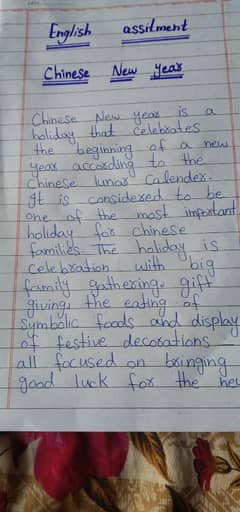 English assitment
Chinese New Year
Chinese New year is a
holiday that celebrates
the beginning of a new
year according to the
Chinese lunar Calender.
It is considered to be
one of the most important
holiday for chinese
families. The holiday is
celebration with big
family gathering, gift
giving, the eating of
symbolic foods and display
of festive decorations
all focused on bringing
good luck for the new